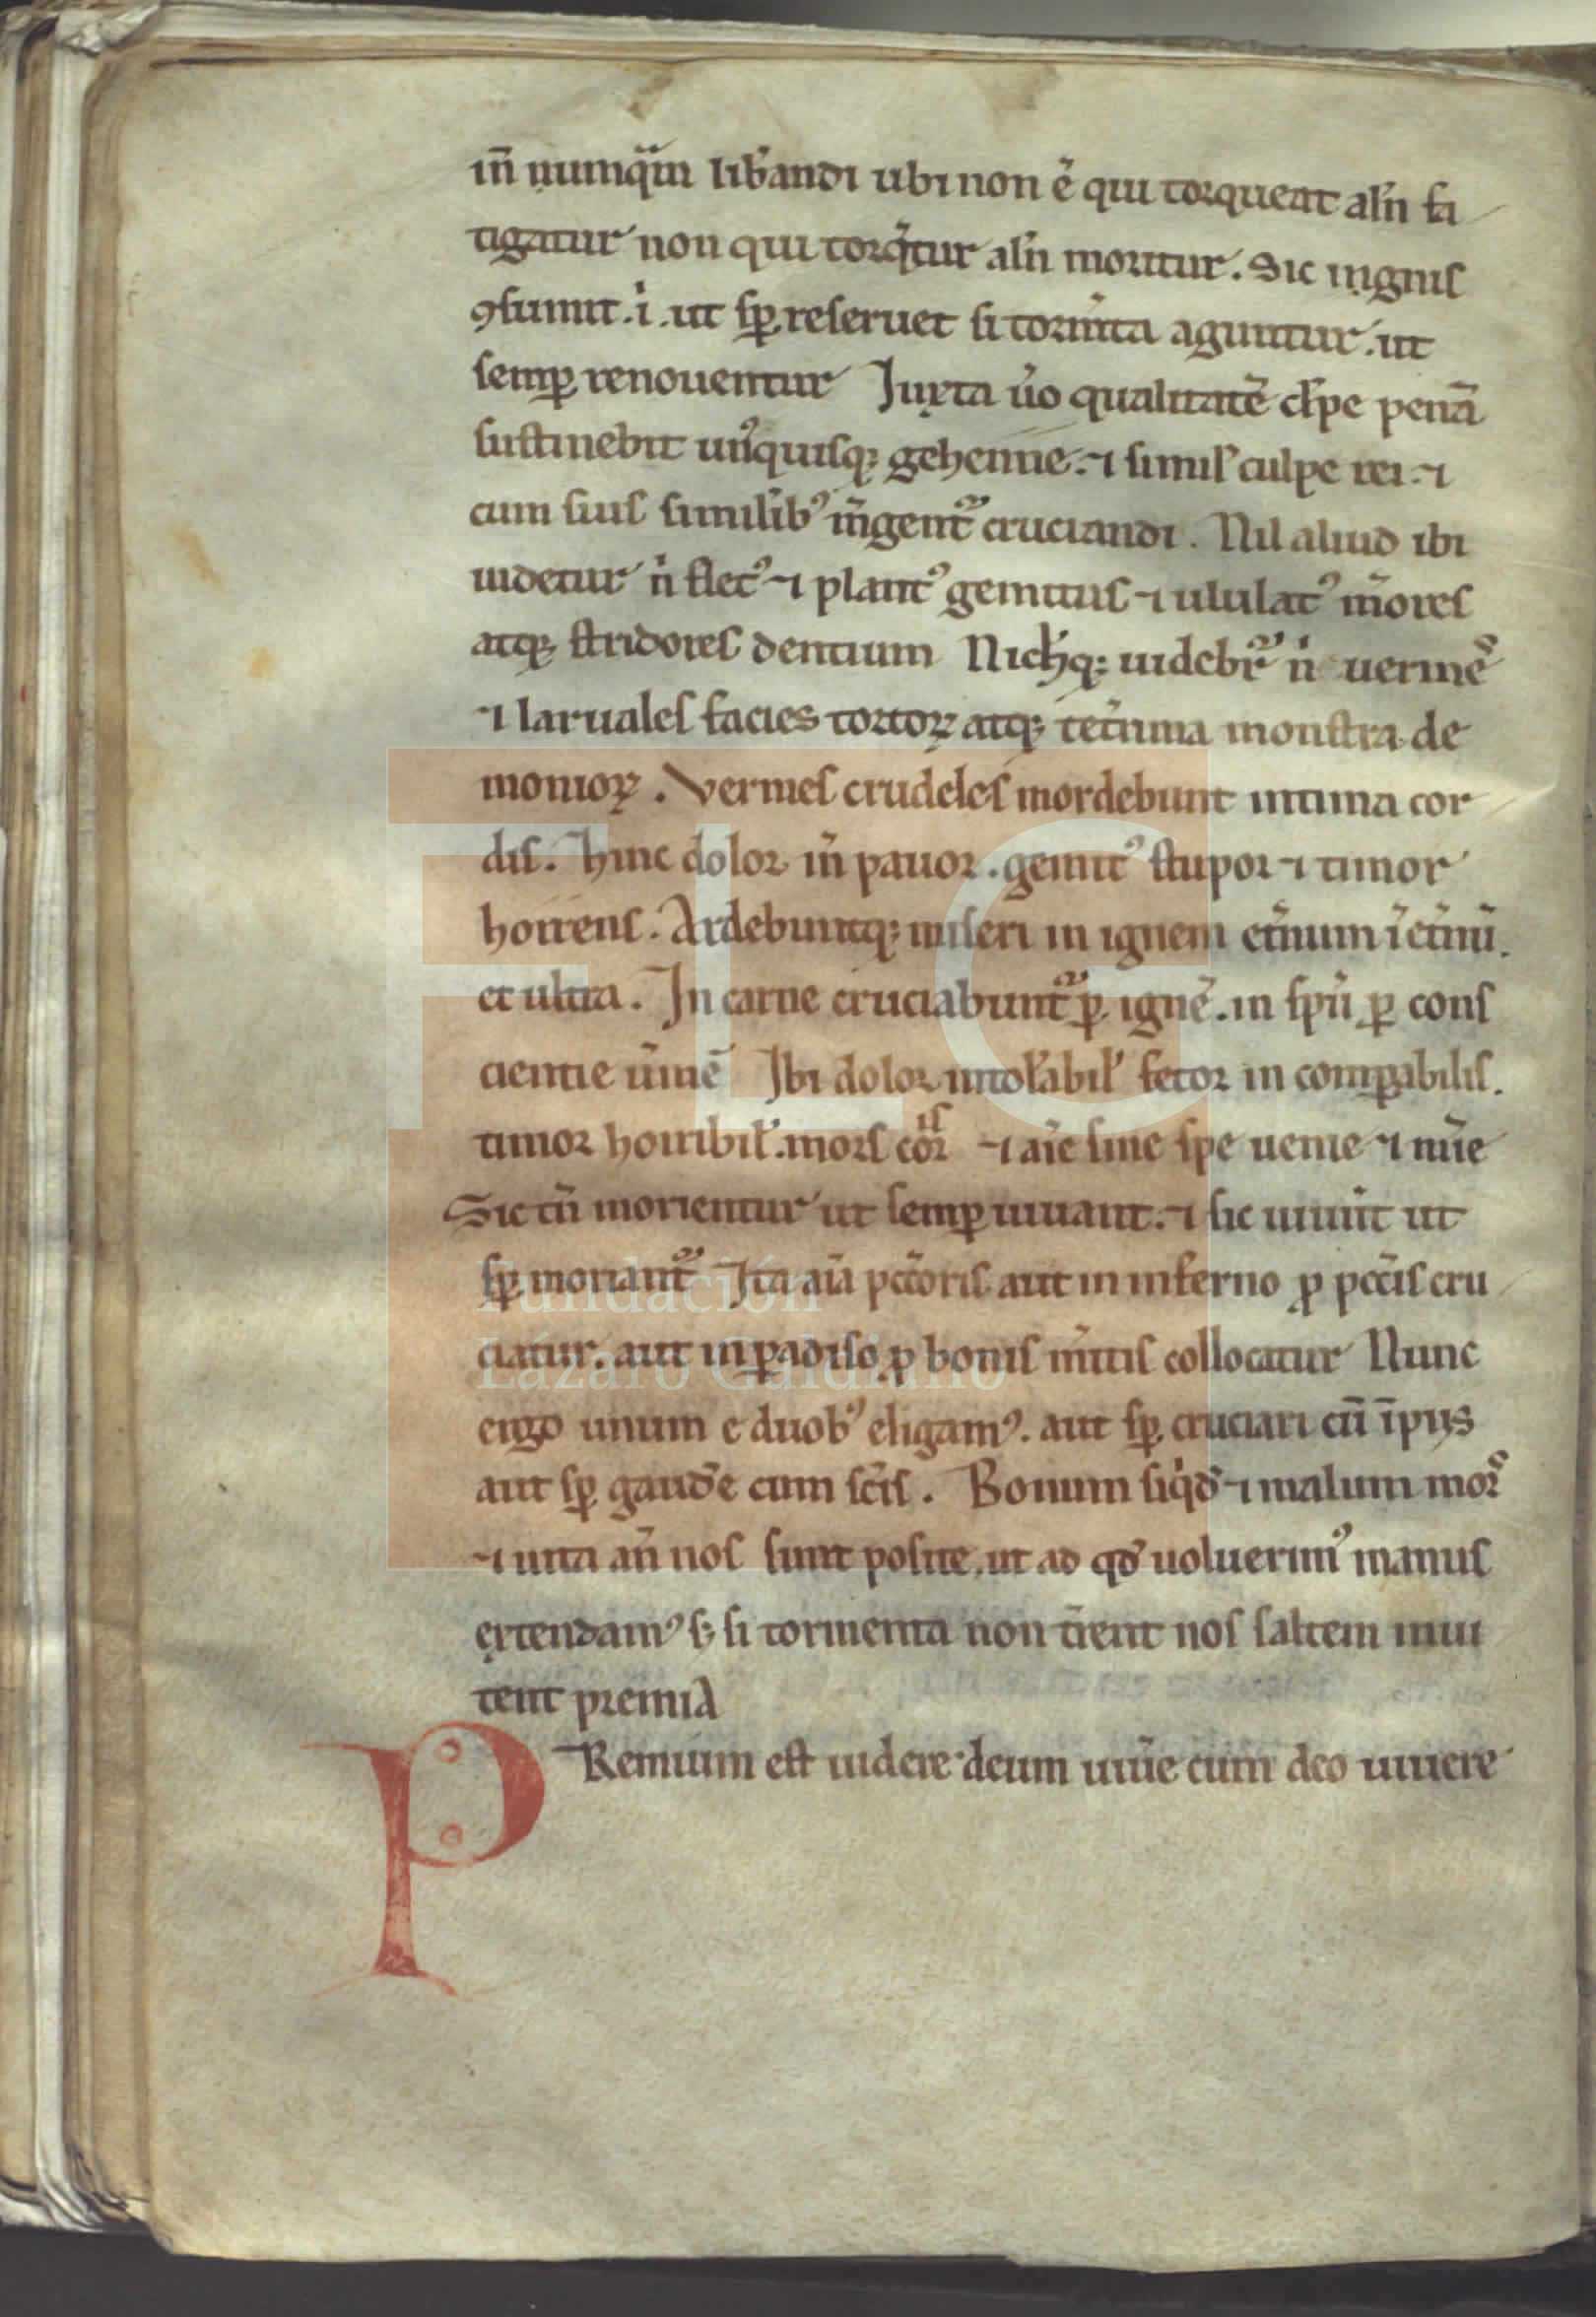 in̄ numq̄m lib̄andi ubi non ē qui torqueat al̄n fa
tigatur non qui torq̄tur al̄n moritur. Sic ingnis
ꝯsumit .i. ut sp̱ reseruet si torm̄ta aguntur. ut
semꝑ renouentur Iuxta ūo qualitatē cl̄pe penā
sustinebit unꝰquisqꝫ gehenne. ⁊ simil' culpe rei. ⁊
cum suis similib' īūgent᷑ cruciandi. Nil aliud ibi
uidetur n̄ flet' ⁊ planct' gemitus ⁊ ululat' m̄ores
atqꝫ stridores dentium Nichq̄ꝫ uidebr᷑ n̄ uerme᷒
⁊ laruales facies tortoꝝ atqꝫ tet̄rima monstra de
monioꝝ. Vermes crudeles mordebunt intima cor
dis. hinc dolor in̄ pauor. gemit' stupor ⁊ timor
horrens. Ardebuntqꝫ miseri in ignem et̄num ī et̄nū.
et ultra. In carne cruciabunt᷑ ꝑ ignē. in spū ꝑ cons
cientie ūmē Ibi dolor intol'abil' fetor in comꝑabilis.
timor horribil'. mors cor̄is ⁊ aīe sine spe uenie ⁊ mīe
Sic tn̄ morientur ut semꝑ uiuant. ⁊ sic uiuūt ut
sꝑ moriant᷑ Ita aīa pctōris aut in inferno ꝓ pccīs cru
ciatur. aut in ꝑadiso ꝓ bonis m̄itis collocatur Nunc
ergo unum e duob' eligam'. aut sꝑ cruciari cū īpijs
aut sꝑ gaud'e cum sc̄is. Bonum siq̇d' ⁊ malum mor᷒
⁊ uita an̄ nos sunt posite. ut ad qd' uoluerim' manus
extendam' sꝫ si tormenta non t̄rent nos saltem inui
tent premia
PRemium est uidere deum uiūe cum deo uiuere
Fundación
Lázaro Galdiano
FLG